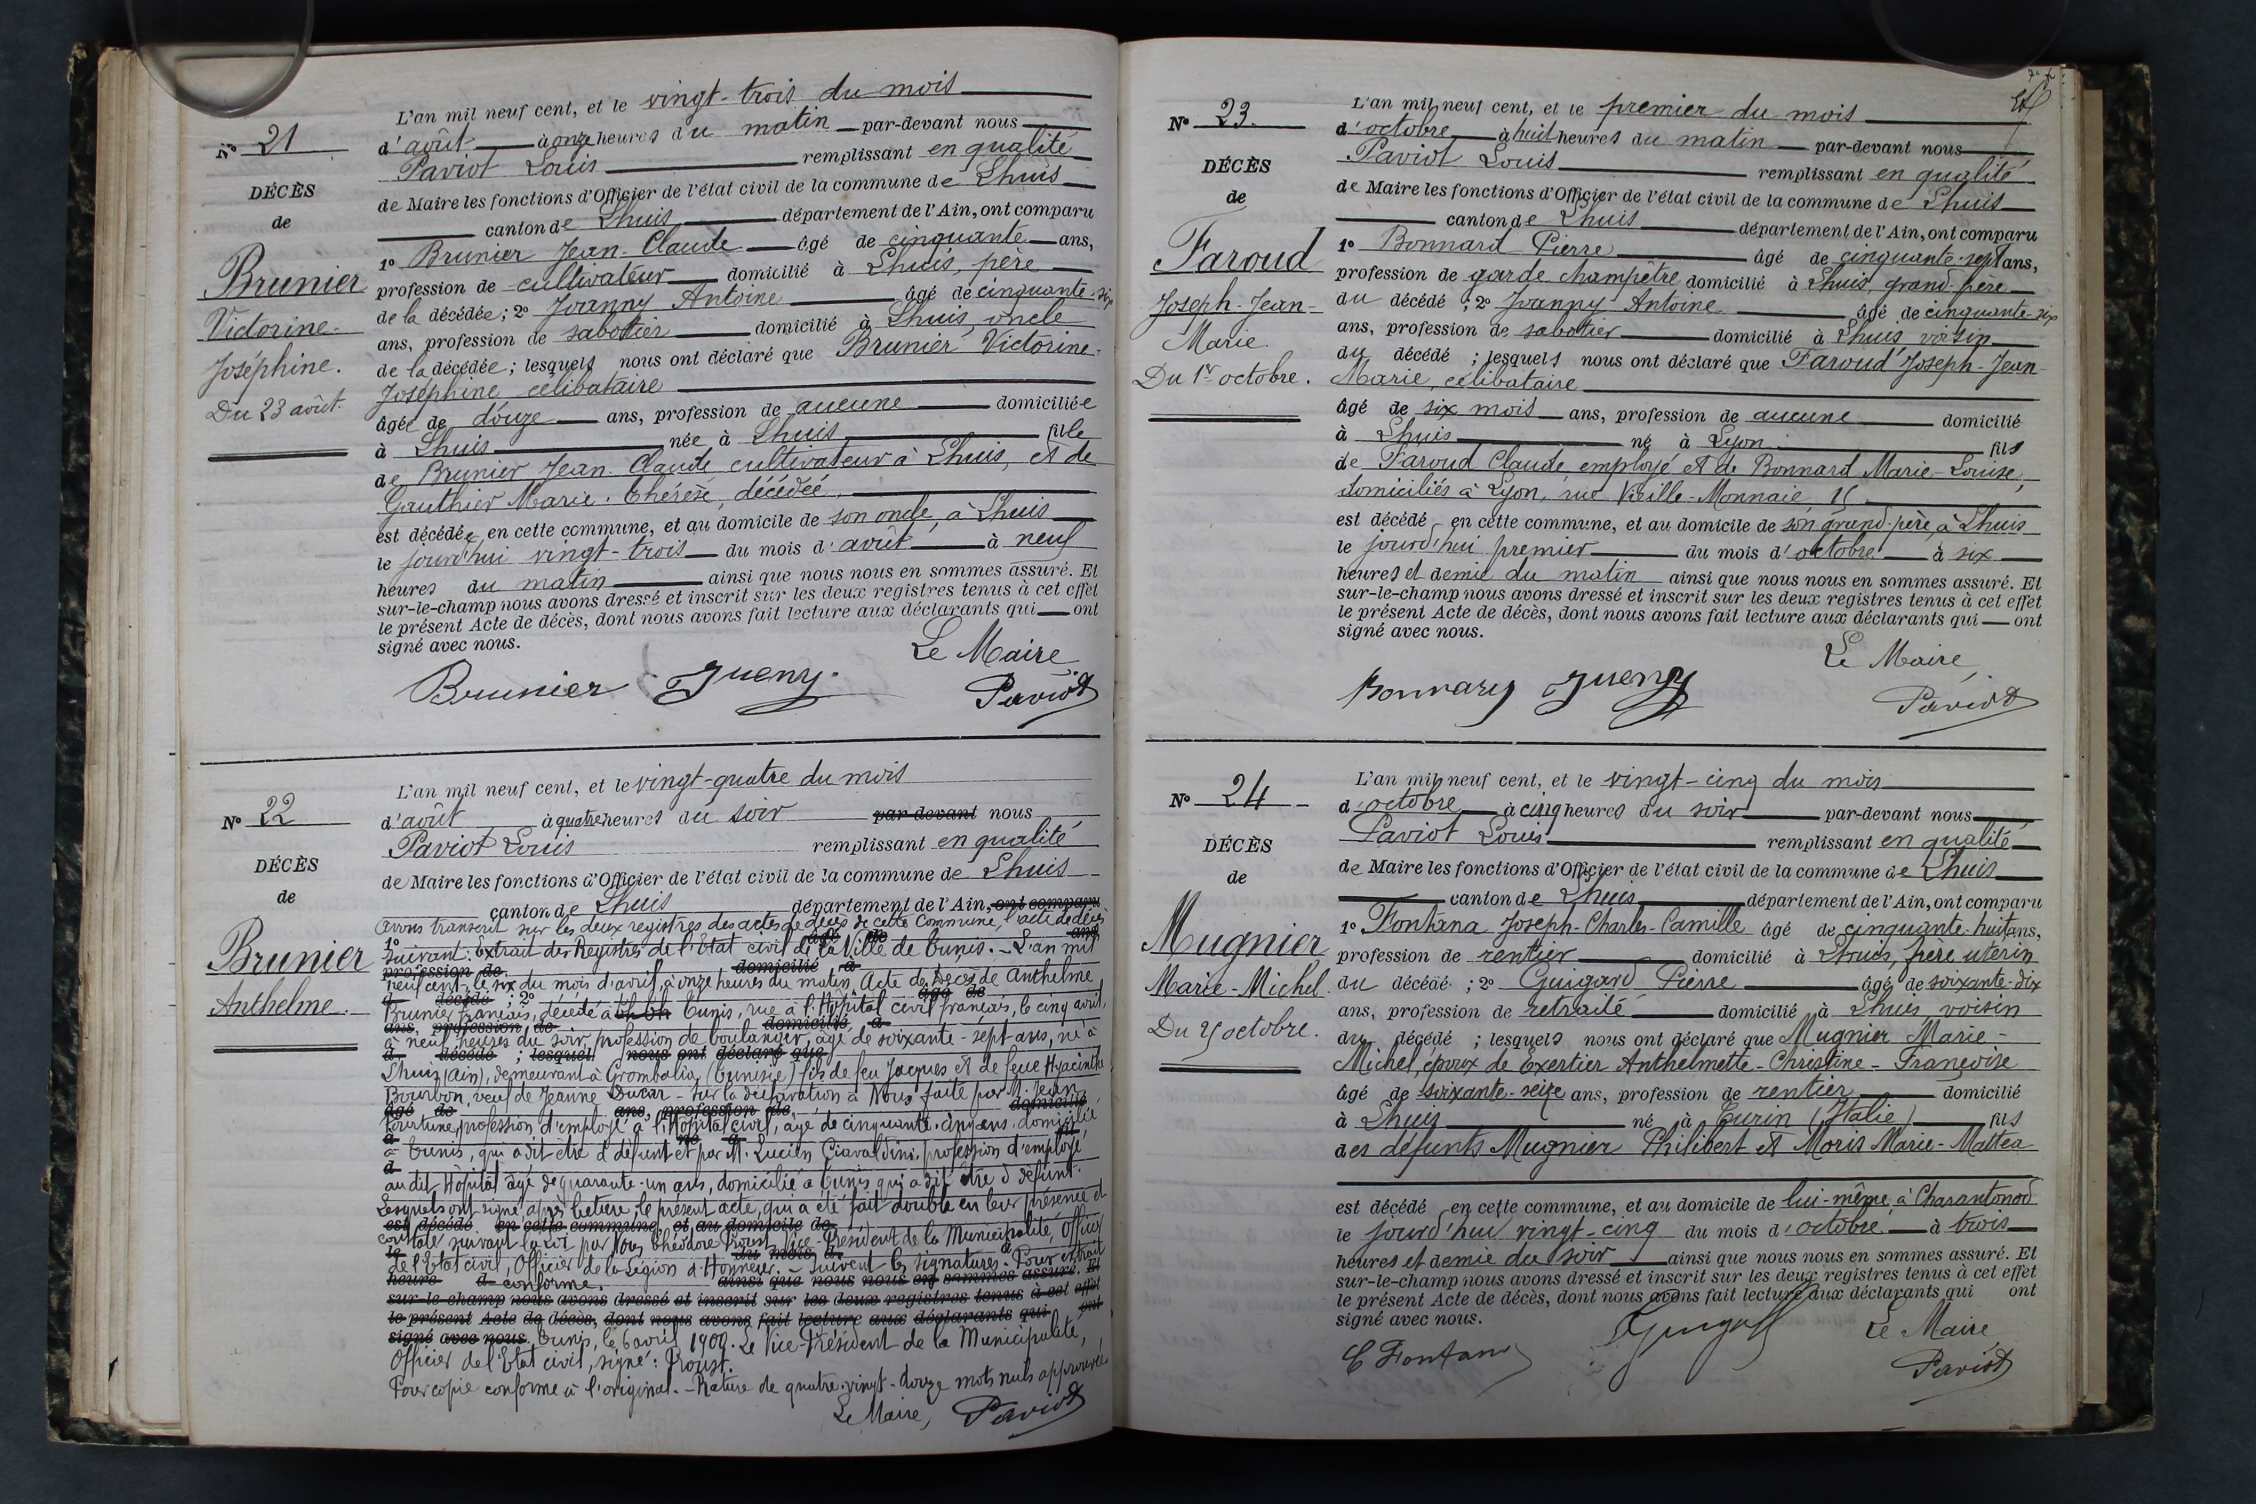 L'an mil neuf cent, et le vingt-trois du mois
N° 21
d'août à onze heures du matin par-devant nous
Paviot Louis remplissant en qualité
DÉCÈS
de Maire les fonctions d'Officier de l'état civil de la commune de Lhuis
de
canton de Lhuis département de l'Ain, ont comparu
1° Brunier Jean-Claude âgé de cinquante ans,
Brunier
profession de cultivateur domicilié à Lhuis, père
de la décédée; 2° Joanny Antoine âgé de cinquante-six
Victorine-
ans, profession de sabotier domicilié à Lhuis, oncle
de la décédée; lesquels nous ont déclaré que Brunier Victorine-
Joséphine.
Joséphine, célibataire
Du 23 août.
âgée de douze ans, profession de aucune domiciliée
à Lhuis née à Lhuis fille
de Brunier Jean-Claude cultivateur à Lhuis, et de
Gauthier Marie-Thérèse, décédée,
est décédée en cette commune, et au domicile de son oncle, à Lhuis
le jourd'hui vingt-trois du mois d'août à neuf
heures du matin ainsi que nous nous en sommes assuré. Et
sur-le-champ nous avons dressé et inscrit sur les deux registres tenus à cet effet
le présent Acte de décès, dont nous avons fait lecture aux déclarants qui ont
signé avec nous.
Le Maire
Brunier Paviot
L'an mil neuf cent, et le vingt-quatre du mois
N° 22
d'août à quatre heures du soir par devant nous
Paviot Louis remplissant en qualité
DÉCÈS
de Maire les fonctions d'Officier de l'état civil de la commune de Lhuis
de
canton de Lhuis département de l'Ain, ont comparu
avons transcrit sur les deux registres des actes de décès de cette commune, l'acte de décès
Brunier
suivant: Extrait des Registres de l'Etat civil de la Ville de Tunis. - L'an mil
neuf cent, le six du mois d'avril, à onze heures du matin, Acte de Décès de Anthelme
Anthelme.
Brunier français, décédé à Tunis, rue à l'Hôpital civil français, le cinq avril,
à neuf heures du soir, profession de boulanger, âgé de soixante-sept ans, né à
Lhuis (Ain), demeurant à Grombalia (Tunisie) fils de feu Jacques et de feue Hyacinthe
Bourbon, veuf de Jeanne - Sur la déclaration à Nous faite par M. Jean
profession d'employé à l'Hôpital civil, âgé de cinquante-cinq ans, domicilié
à Tunis, qui a dit être d défunt et par M. Lucien Ciavaldini, profession d'employé
au dit Hôpital âgé de quarante-un ans, domicilié à Tunis qui a dit être d défunt.
Lesquels ont signé, après lecture, le présent acte, qui a été fait double en leur présence et
constaté suivant la Loi par Nous Théodore Proust, Vice-Président de la Municipalité, Officier
de l'Etat civil, Officier de la Légion d'Honneur. - Suivent les signatures. Pour extrait
conforme.
sur-le-champ nous avons dressé et inscrit sur les deux registres tenus à cet effet
le présent Acte de décès, dont nous avons fait lecture aux déclarants qui ont
signé avec nous. Tunis, le 6 avril 1900. Le Vice-Président de la Municipalité,
Officier de l'Etat civil, signé: Proust.
Pour copie conforme à l'original. - Rature de quatre-vingt-douze mots nuls approuvée
Le Maire, Paviot
L'an mil neuf cent, et le premier du mois
N° 23.
d'octobre à huit heures du matin par-devant nous
Paviot Louis remplissant en qualité
DÉCÈS
de Maire les fonctions d'Officier de l'état civil de la commune de Lhuis
de
canton de Lhuis département de l'Ain, ont comparu
1° Bonnard Pierre âgé de cinquante-sept ans,
Faroud
profession de garde champêtre domicilié à Lhuis, grand-père
Joseph-Jean-
du décédé; 2° Joanny Antoine âgé de cinquante-six
Marie.
ans, profession de sabotier domicilié à Lhuis voisin
du décédé; lesquels nous ont déclaré que Faroud Joseph-Jean-
Du 1er octobre.
Marie, célibataire
âgé de six mois ans, profession de aucune domicilié
à Lhuis né à Lyon fils
de Faroud Claude employé et de Bonnard Marie-Louise,
domiciliés à Lyon, rue Vieille-Monnaie,
est décédé en cette commune, et au domicile de son grand-père, à Lhuis
le jourd'hui premier du mois d'octobre à six
heures et demie du matin ainsi que nous nous en sommes assuré. Et
sur-le-champ nous avons dressé et inscrit sur les deux registres tenus à cet effet
le présent Acte de décès, dont nous avons fait lecture aux déclarants qui ont
signé avec nous.
Le Maire
Bonnard Paviot
L'an mil neuf cent, et le vingt-cinq du mois
N° 24
d'octobre à cinq heures du soir par-devant nous
Paviot Louis remplissant en qualité
DÉCÈS
de Maire les fonctions d'Officier de l'état civil de la commune de Lhuis
de
canton de Lhuis département de l'Ain, ont comparu
1° Fontana Joseph-Charles-Camille âgé de cinquante-huit ans,
Mugnier
profession de rentier domicilié à frère utérin
Marie-Michel.
du décédé; 2° Guigard Pierre âgé de soixante-dix
ans, profession de retraité domicilié à Lhuis voisin
Du 25 octobre.
du décédé; lesquels nous ont déclaré que Mugnier Marie-
Michel, époux de Exertier Anthelmette-Christine-Françoise
âgé de soixante-seize ans, profession de rentier domicilié
à Lhuis né à Turin (Italie) fils
des défunts Mugnier Philibert et Moris Marie-Mattea
est décédé en cette commune, et au domicile de lui-même, à Charantonod
le jourd'hui vingt-cinq du mois d'octobre à trois
heures et demie du soir ainsi que nous nous en sommes assuré. Et
sur-le-champ nous avons dressé et inscrit sur les deux registres tenus à cet effet
le présent Acte de décès, dont nous avons fait lecture aux déclarants qui ont
signé avec nous.
Le Maire
C Fontana Paviot